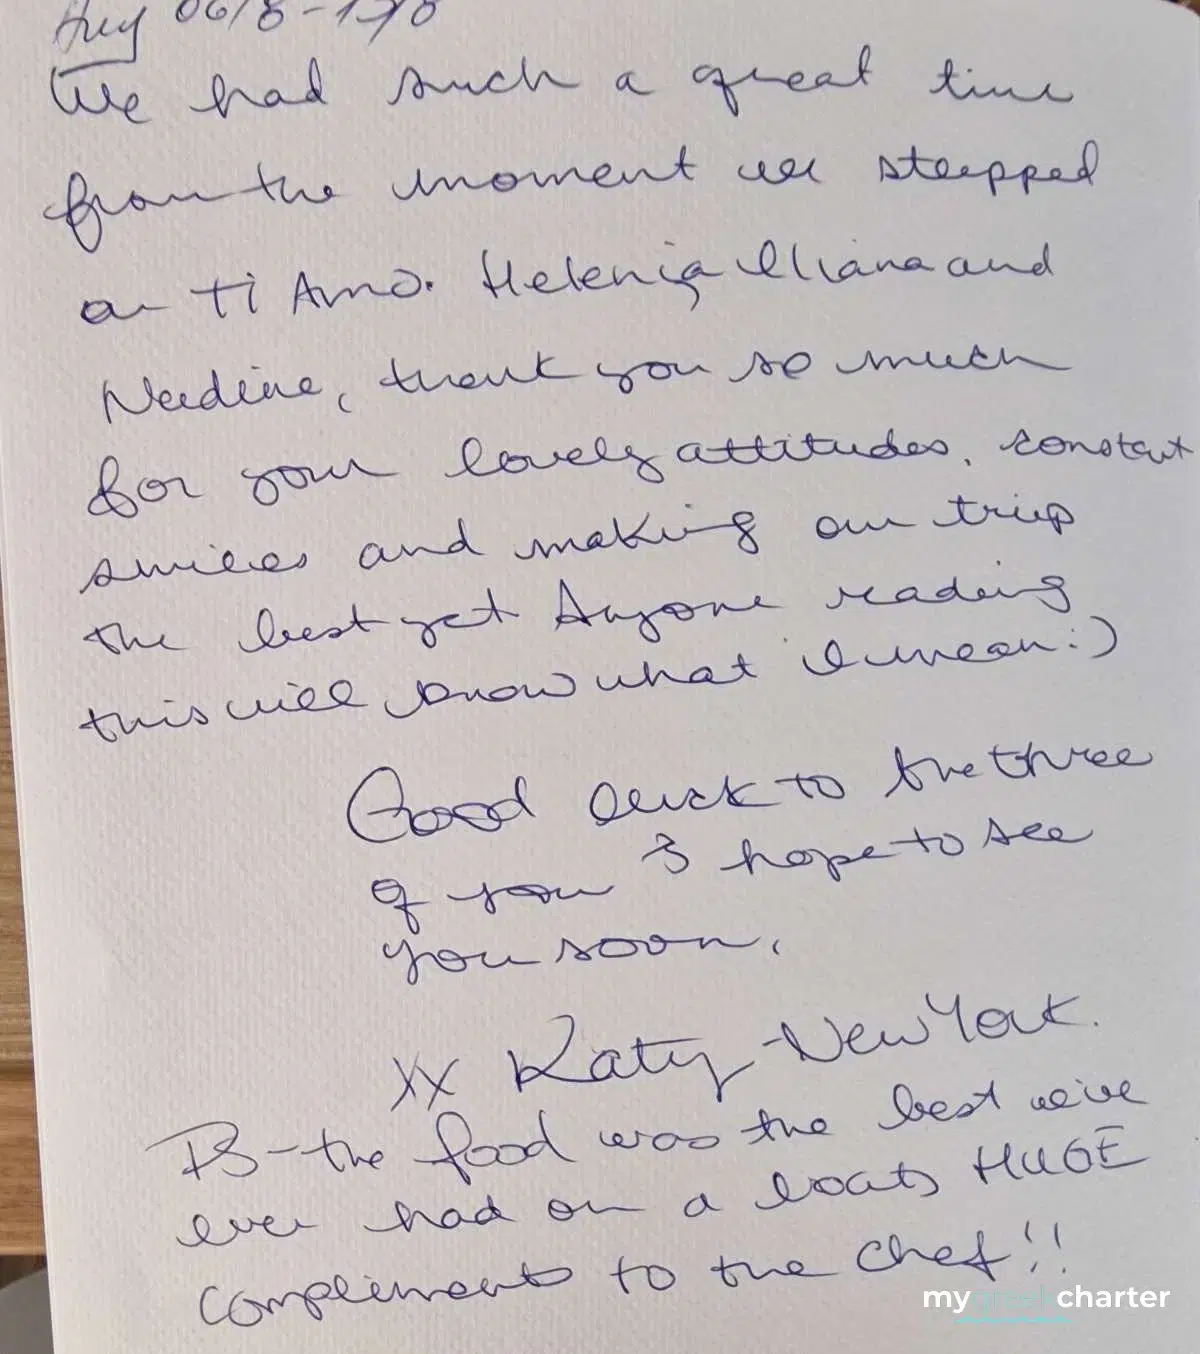 Aug 06/8 -
We had such a great time
from the moment we stepped
on Ti Amo. Helenia, Iliana and
Nadine, thank you so much
for your lovely attitudes, constant
smiles and making our trip
the best yet Anyone reading
this will know what I mean :)
Good luck to the three
of you & hope to see
you soon.
XX Katy - New York.
PS - the food was the best we've
ever had on a boat HUGE
compliments to the chef!!
mygreekcharter